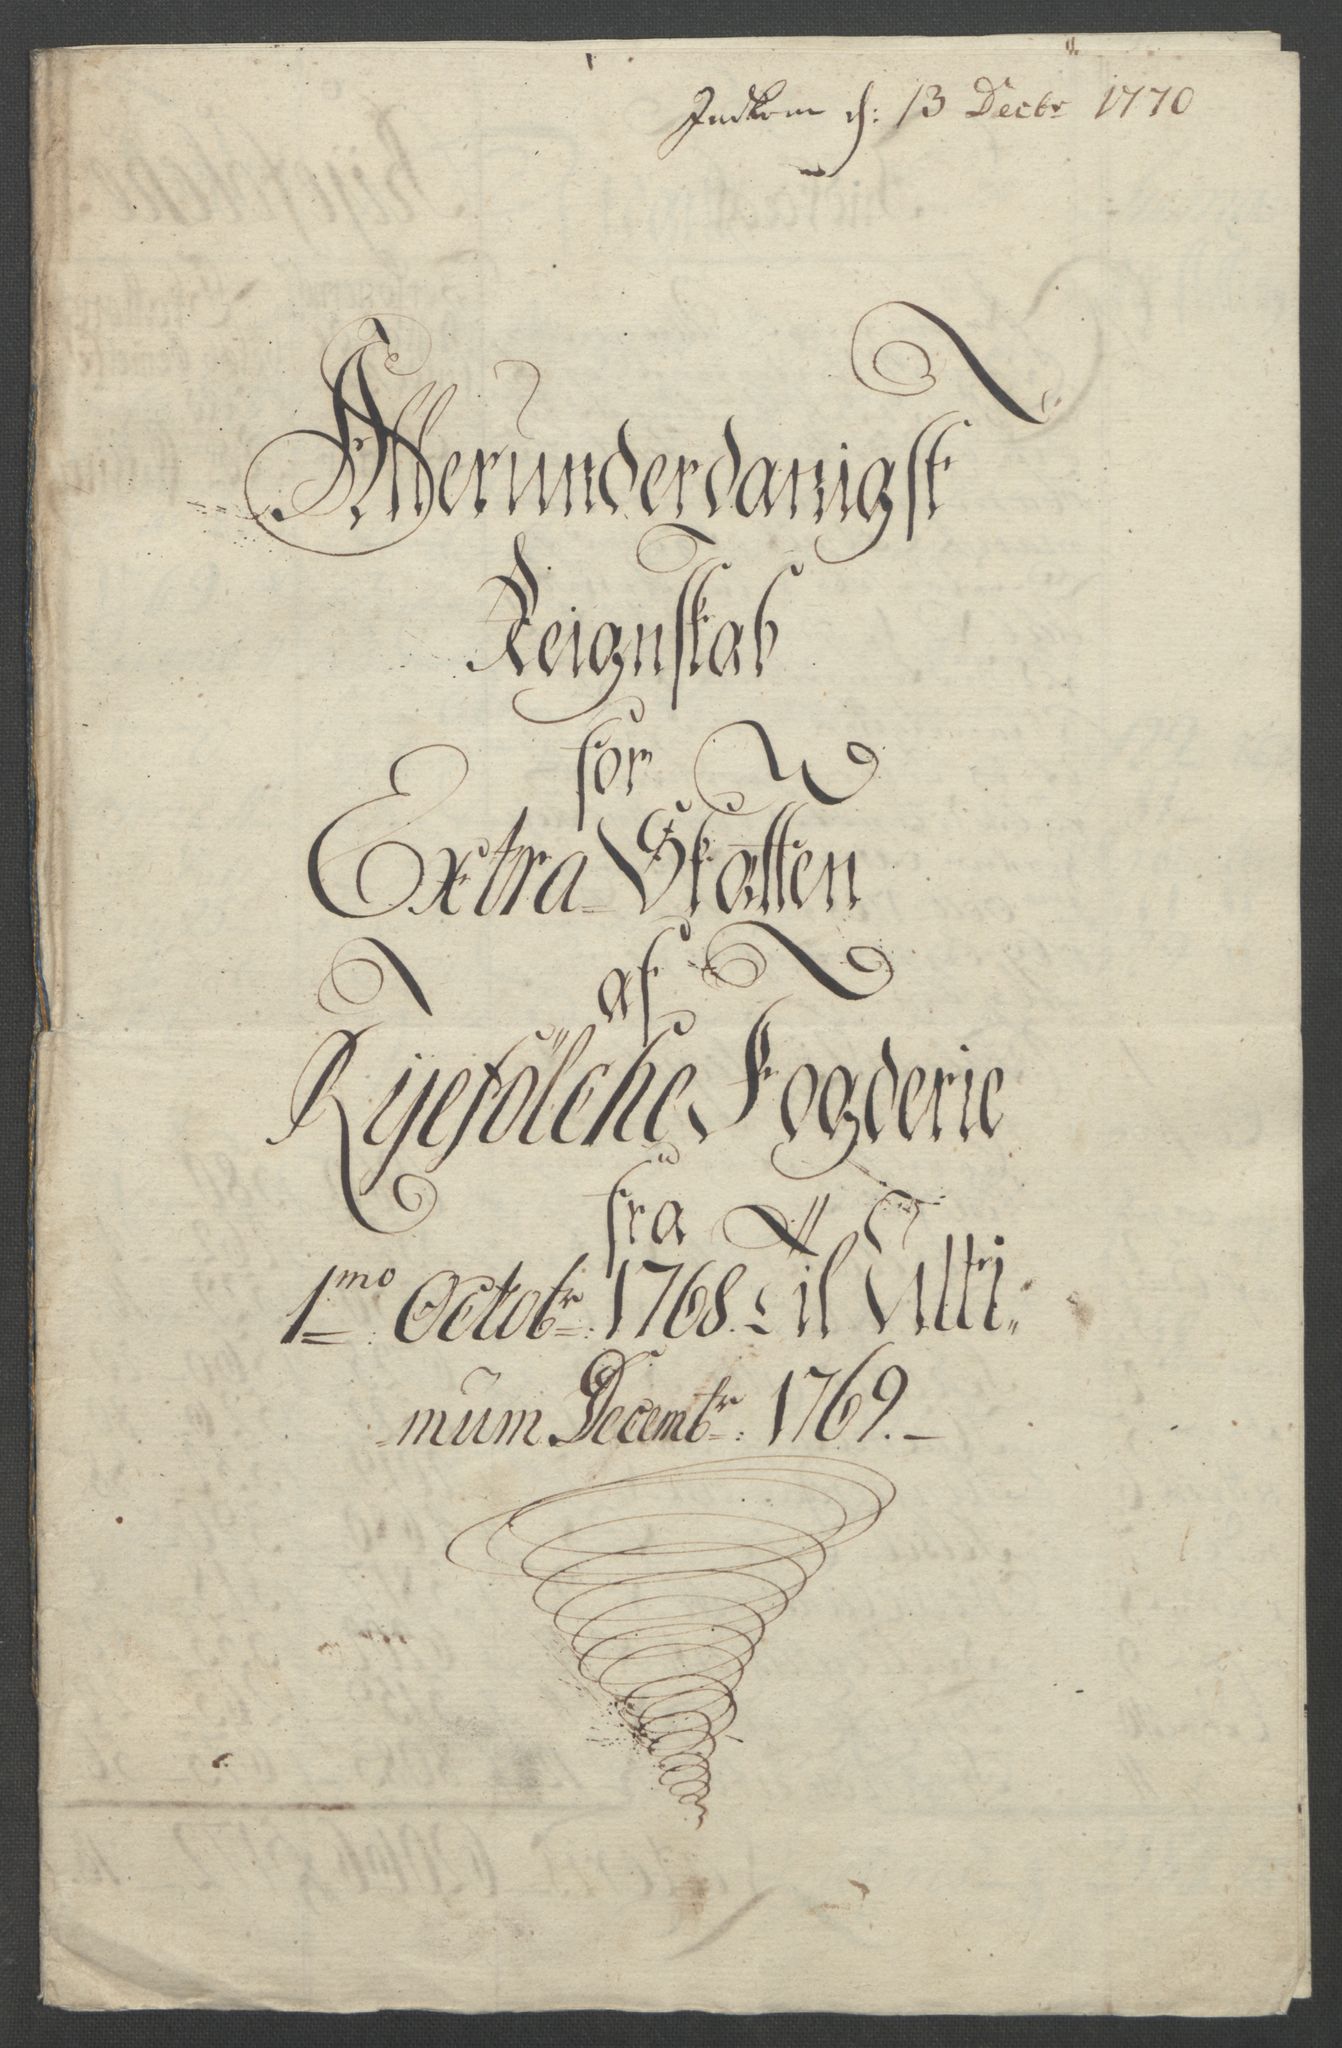 Indkom d: 13 Decbr 1770
Allerunderdanigst
Reignskab
for
Extra-Skatten
af
Ryefölche Fogderie
fra
1mo Octobr: 1768. til Ulti-
mum Decembr: 1769.